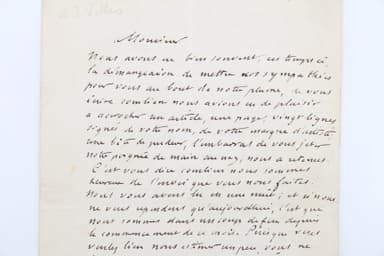 Monsieur
Nous avons eu bien souvent, ces temps ci,
la démangeaison de mettre nos sympathies
pour vous au bout de notre plume, de vous
écrire combien nous avions eu de plaisir
à accrocher un article, une page, vingt lignes
signés de votre nom, de votre marque d'artiste
une bête de pudeur, l'embarras de vous jeter
notre poignée de main au nez, nous a retenus.
C'est vous dire combien nous sommes
heureux de l'envoi que vous nous faites.
Nous vous avons lu en une nuit; et si nous
ne vous répondons qu'aujourdhui, c'est que
nous sommes dans un coup de feu depuis
le commencement de ce mois. Puisque vous
voulez bien nous estimer un peu, vous ne